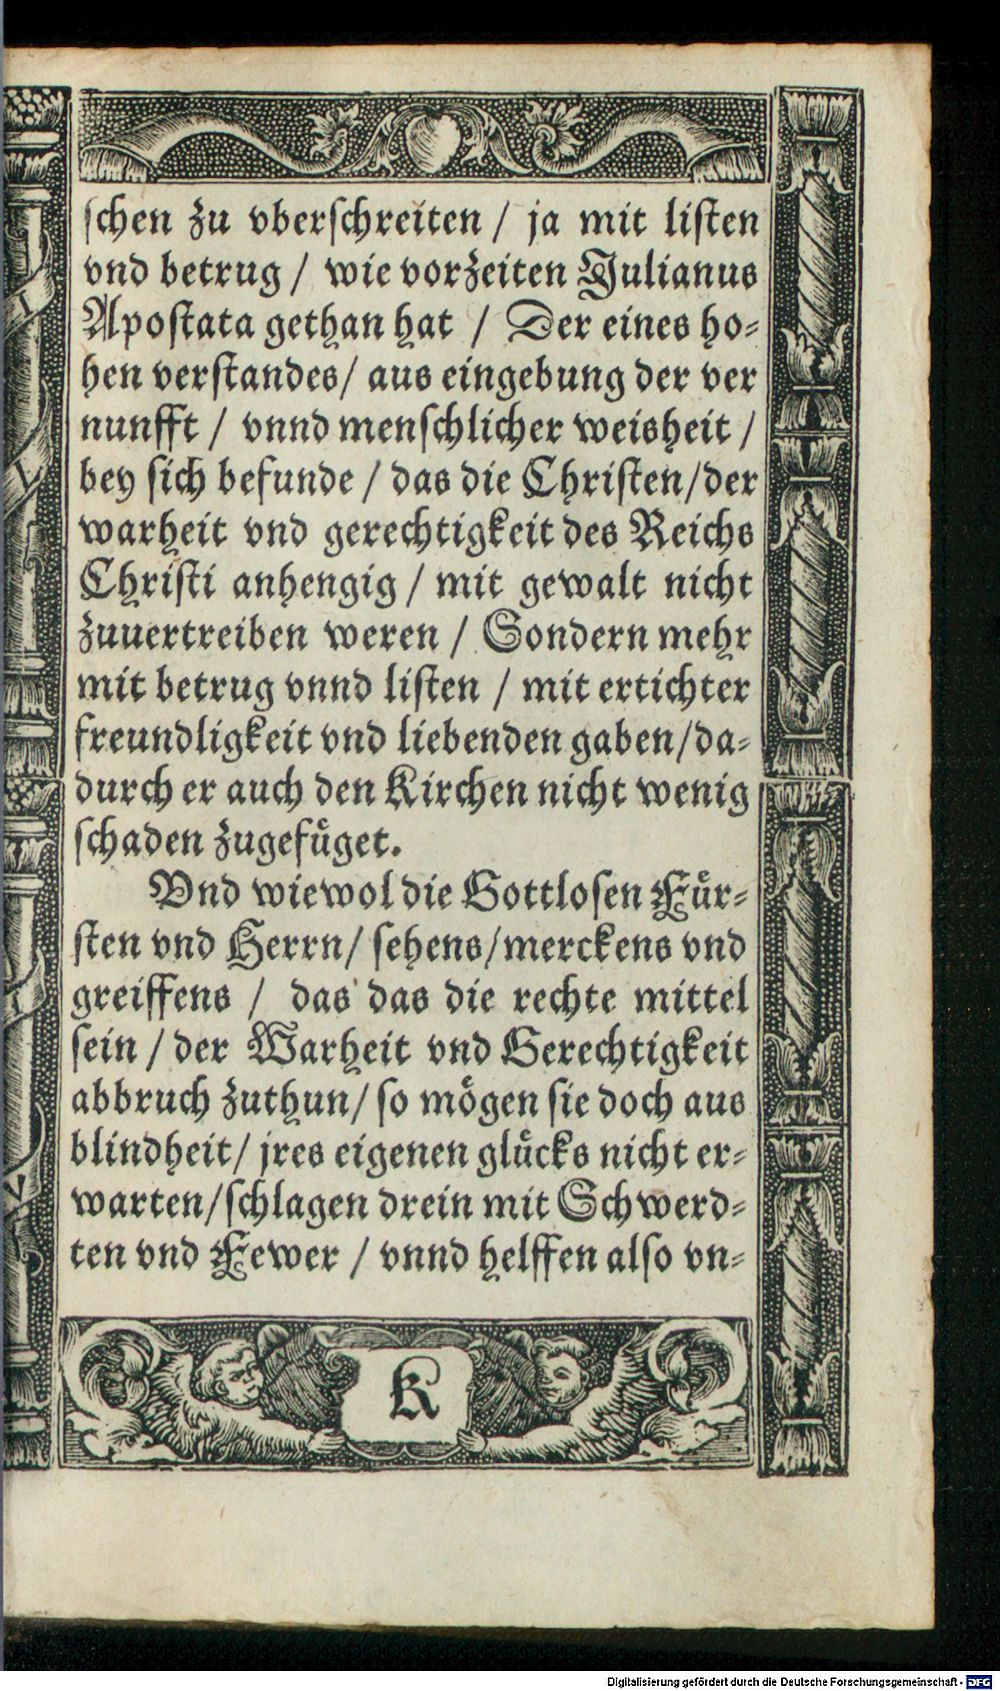 schen zu vberschreiten / ja mit listen
vnd betrug / wie vorzeiten Julianus
Apostata gethan hat / Der eines ho-
hen verstandes / aus eingebung der ver
nunfft / vnnd menschlicher weisheit /
bey sich befunde / das die Christen / der
warheit vnd gerechtigkeit des Reichs
Christi anhengig / mit gewalt nicht
zuuertreiben weren / Sondern mehr
mit betrug vnnd listen / mit ertichter
freundligkeit vnd liebenden gaben / da-
durch er auch den Kirchen nicht wenig
schaden zugefüget.
Vnd wiewol die Gottlosen Für-
sten vnd Herrn / sehens / merckens vnd
greiffens / das das die rechte mittel
sein / der Warheit vnd Gerechtigkeit
abbruch zuthun / so mögen sie doch aus
blindheit / jres eigenen glücks nicht er-
warten / schlagen drein mit Schwerd-
ten vnd Fewer / vnnd helffen also vn-
K
Digitalisierung gefördert durch die Deutsche Forschungsgemeinschaft - DFG